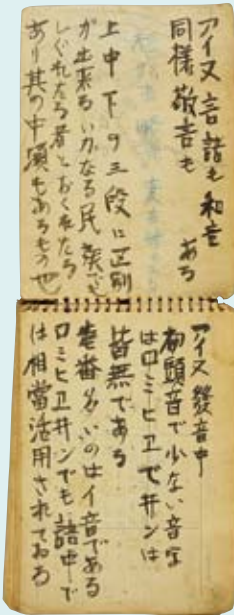 アイヌ言語も和音
同様敬言も
ある
上中下の三段に区別
が出来るいかなる民族でも
しぐれたる者とおくれたる
あり其の中頃もあるもの也
アイヌ發音中
初頭音で少ない音は
はロミヒヱで井ンは
皆無である
壱番多いのはイ音である
ロミヒヱ井ンでも語中で
は相當活用されておる